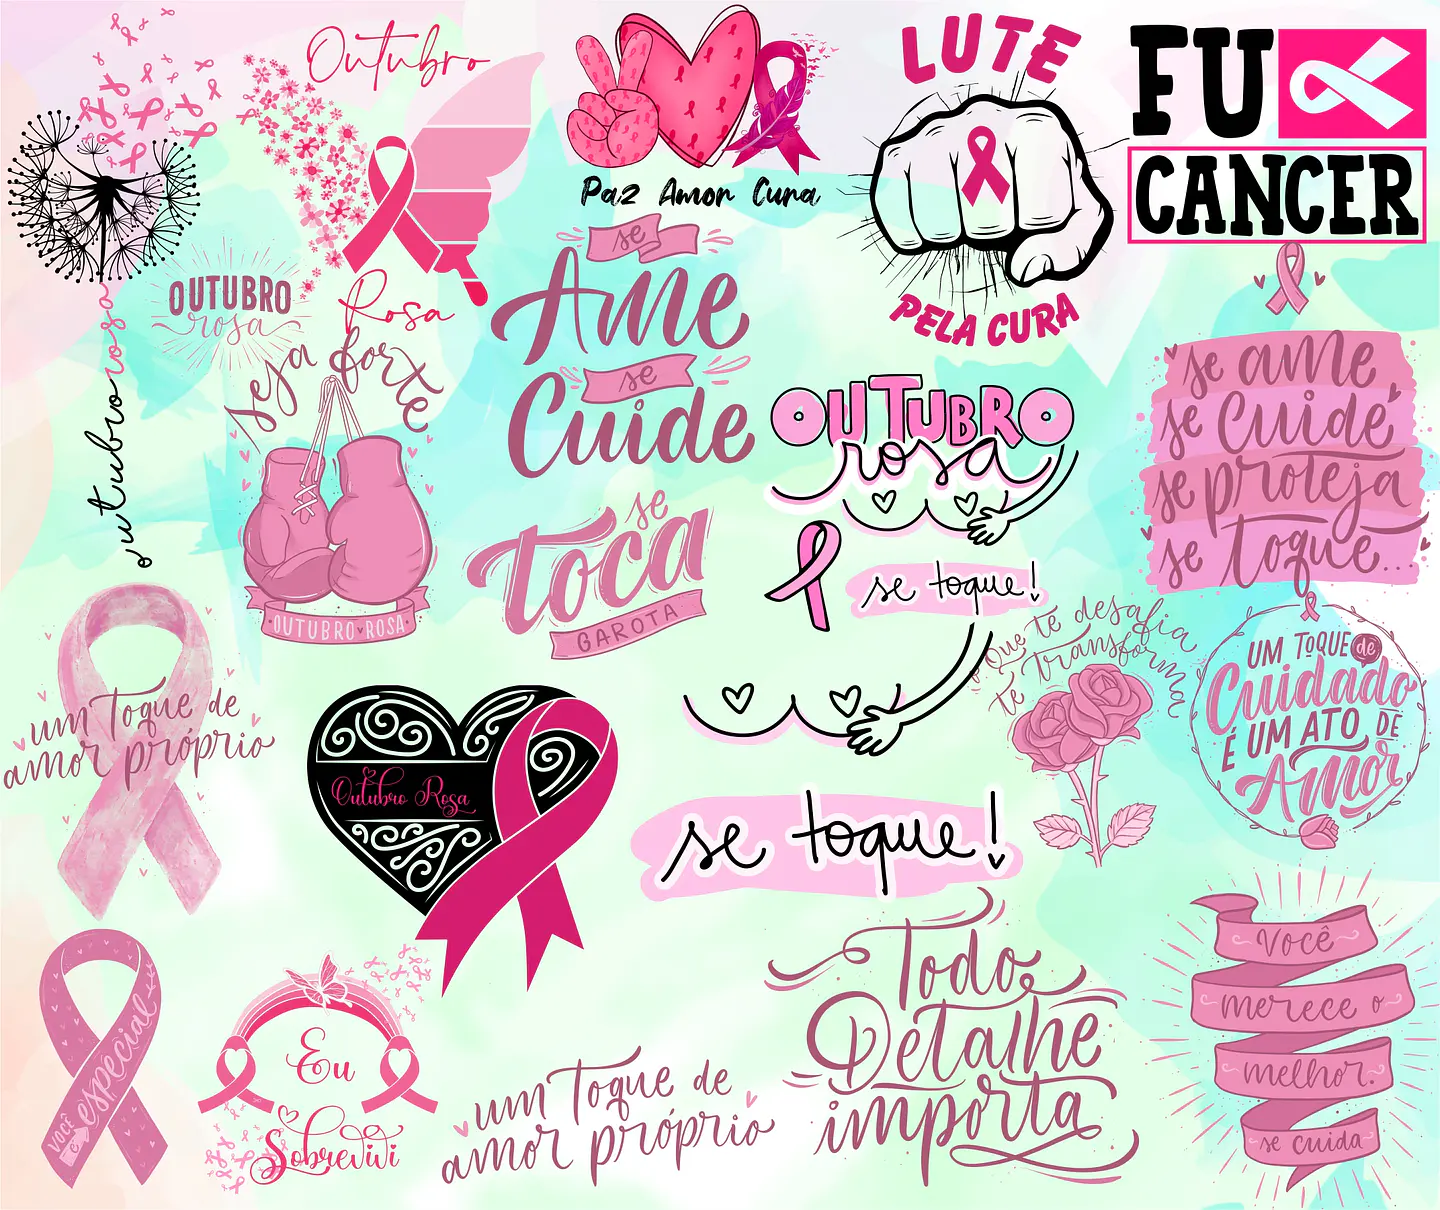 Outubro
Rosa
Paz Amor Cura
LUTE
PELA CURA
FU
CANCER
outubro rosa
OUTUBRO
rosa
seja forte
OUTUBRO ROSA
se
Ame
se
Cuide
se
toca
GAROTA
OUTUBRO
rosa
se toque!
se ame
se cuide
se proteja
se toque...
um toque de
amor próprio
Outubro Rosa
se toque!
o que te desafia
te transforma
UM TOQUE de
Cuidado
É UM ATO DE
Amor
VOCÊ É especial
Eu
Sobrevivi
um toque de
amor próprio
Todo
Detalhe
importa
você
merece o
melhor.
se cuida